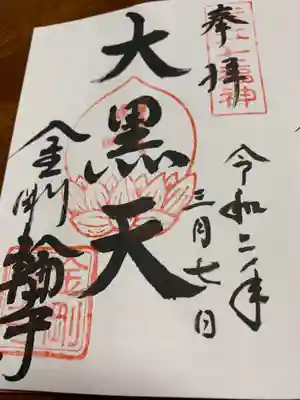 奉拝
令和二年
三月七日
大黒天
金剛輪寺